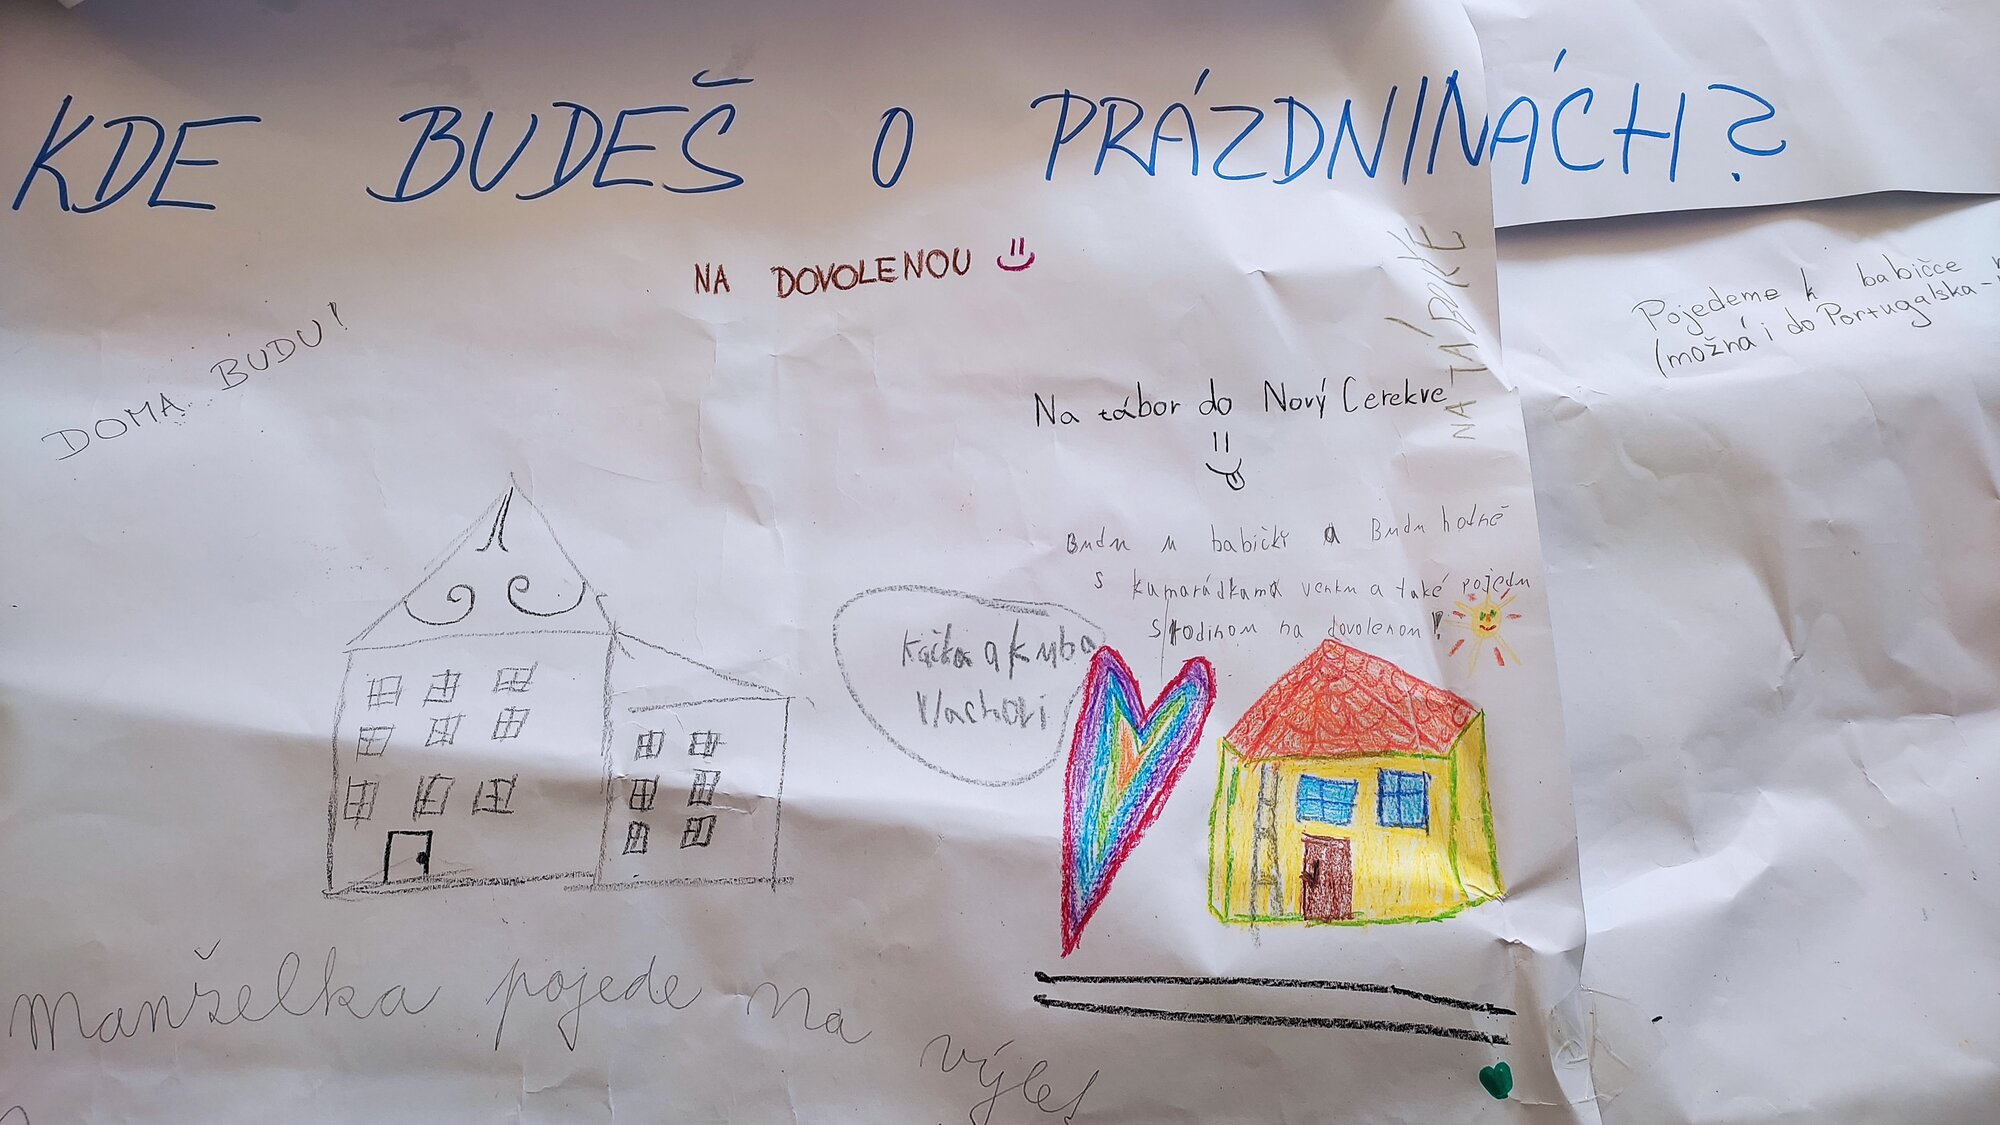 KDE BUDEŠ O PRÁZDNINÁCH?
NA DOVOLENOU
DOMA BUDU!
Pojedeme k babičce
(možná i do Portugalska -
Na tábor do Nový Cerekve
Budu u babičky a Budu hodně
s kamarádkama venku a také pojedu
s rodinou na dovolenou!
Kačka a kuba
Vlachovi
Manželka pojede na výlet